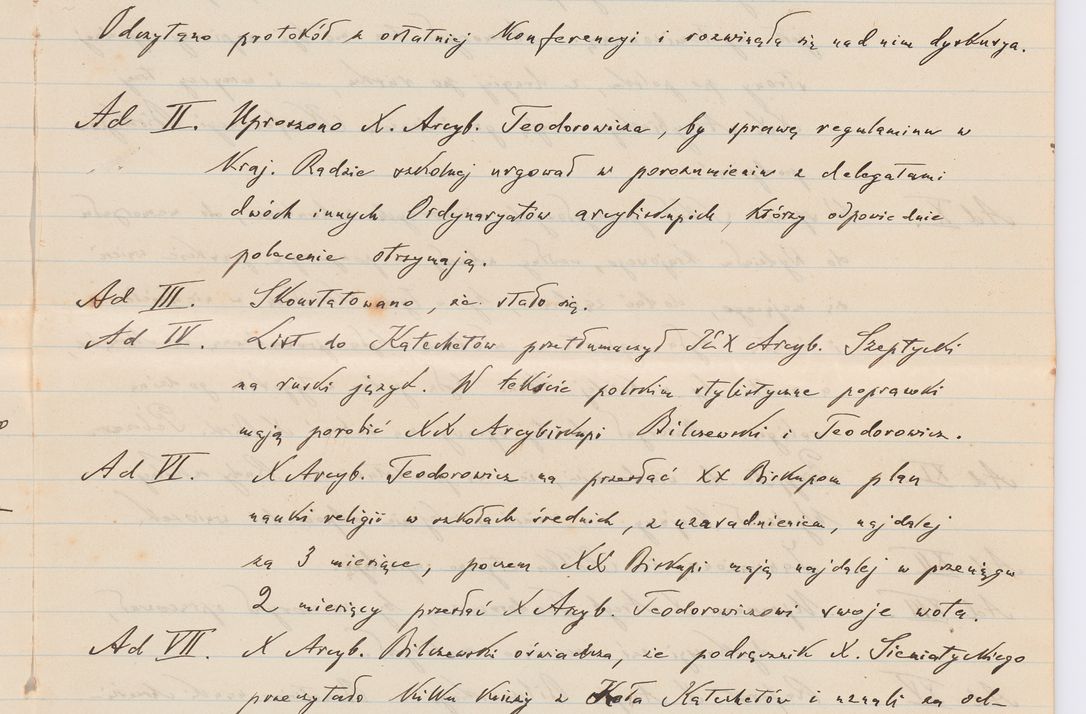 Odczytano protokół z ostatniej Konferencyi i rozwinęła się nad nim dyskusya.
Ad II. Uproszono X. Arcyb. Teodorowicza, by sprawę regulaminu w
Kraj. Radzie szkolnej urgował w porozumieniu z delegatami
dwóch innych Ordynaryatów arcybiskupich, którzy odpowiednie
polecenie otrzymają.
Ad III. Skonstatowano, że stało się.
Ad IV. List do Katechetów przetłumaczył JEX Arcyb. Szeptycki
na ruski język. W tekście polskim stylistyczne poprawki
mają porobić XX Arcybiskupi Bilczewski i Teodorowicz.
Ad VI. X Arcyb. Teodorowicz ma przesłać XX Biskupom plan
nauki religii w szkołach średnich, z uzasadnieniem, najdalej
za 3 miesiące, poczem XX Biskupi mają najdalej w przeciągu
2 miesięcy przesłać X Arcyb. Teodorowiczowi swoje wota.
Ad VII. X Arcyb. Bilczewski oświadcza, że podręcznik X. Sieniatyckiego
przeczytało kilku księży z Koła Katechetów i uznali za od-